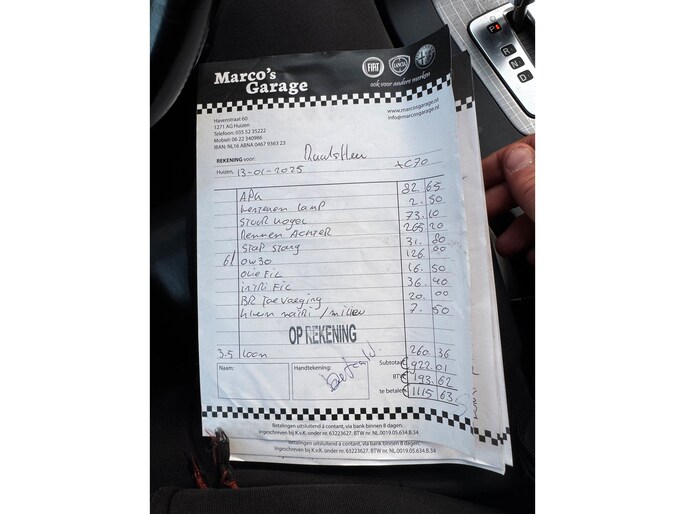 Marco's
Garage
FIAT
LANCIA
ook voor andere merken
Havenstraat 60
1271 AG Huizen
Telefoon: 035 52 35222
Mobiel: 06 22 340986
IBAN: NL16 ABNA 0467 9363 23
www.marcosgarage.nl
info@marcosgarage.nl
REKENING voor:
Huizen, 13-01-2025 XC70
APK 82 65
lamp 2. 50
Stuur kogel 73. 10
Remmen Achter 265 20
Stap Stang 31. 80
6l 0W30 126. 00
olie Fil 16. 50
Fil 36. 40
BR toevoeging 20. 00
/ milieu 7. 50
OP REKENING
3.5 loon 260 36
Naam:
Handtekening:
Subtotaal 922 01
BTW 193. 62
te betalen 1115 63
Betalingen uitsluitend á contant, via bank binnen 8 dagen.
Ingeschreven bij K.v.K. onder nr. 63223627. BTW nr. NL.0019.05.634.B.54
Betalingen uitsluitend á contant, via bank binnen 8 dagen.
ingeschreven bij K.v.K. onder nr. 63223627. BTW nr. NL.0019.05.634.B.54
P
R
N
D